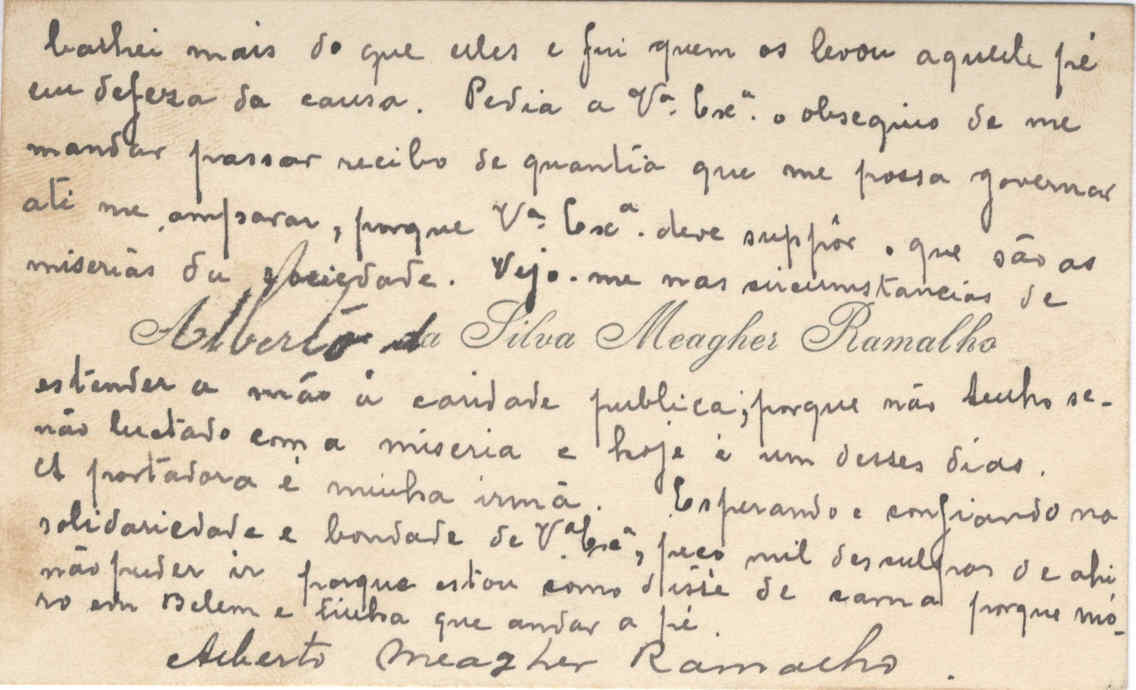 balhei mais do que elles e fui quem os levou aquelle pé
em defeza da causa. Pedia a Vª. Exª. o obsequio de me
mandar passar recibo de quantia que me possa governar
até me amparar, porque Vª. Exª. deve suppôr o que são as
miserias da sociedade. Vejo-me nas circumstancias de
Alberto da Silva Meagher Ramalho
estender a mão á caridade publica; porque não tenho se-
não luctado com a miseria e hoje é um desses dias.
A portadora é minha irmã. Esperando e confiando na
solidariedade e bondade de Vª. Exª, peço mil desculpas de ahi
não puder ir porque estou como disse de cama porque mó-
ro em Belem e tinha que andar a pé.
Alberto Meagher Ramalho.